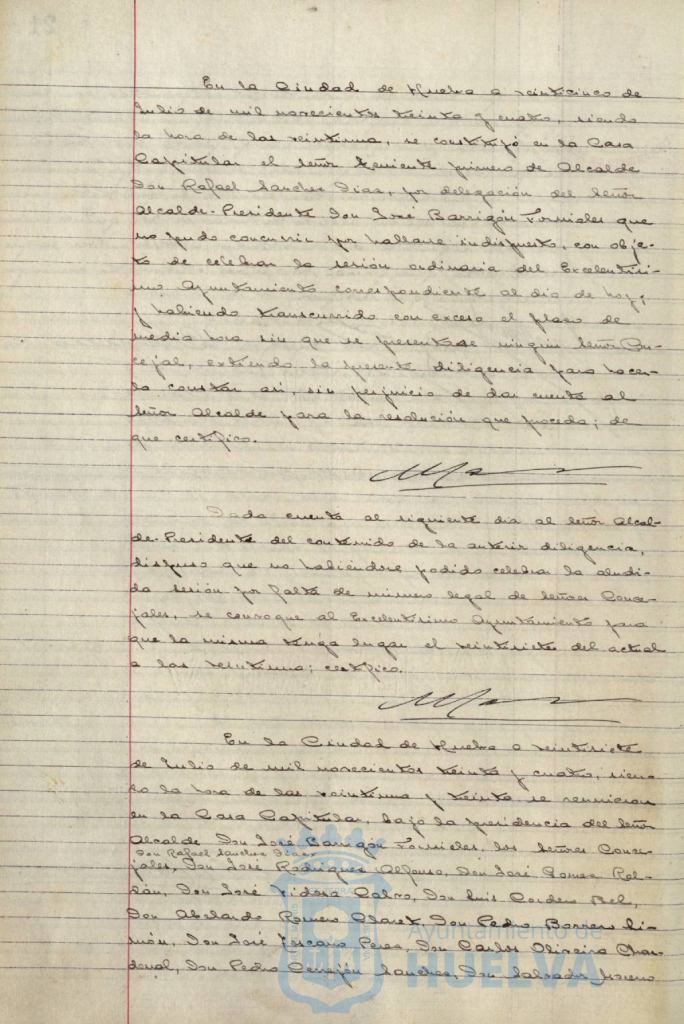 En la Ciudad de Huelva a veinticinco de
Julio de mil novecientos treinta y cuatro, siendo
la hora de las veintiuna, se constituyó en la Casa
Capitular el señor Teniente primero de Alcalde
Don Rafael Sanchez Diaz, por delegación del Señor
Alcalde-Presidente Don José Barrigón Fornieles que
no pudo concurrir por hallarse indispuesto, con obje-
to de celebrar la sesión ordinaria del Excelentísi-
mo Ayuntamiento correspondiente al día de hoy;
y habiendo transcurrido con exceso el plazo de
media hora sin que se presentase ningún Señor Con-
cejal, extiendo la presente diligencia para hacer-
lo constar así, sin perjuicio de dar cuenta al
Señor Alcalde para la resolución que proceda; de
que certifico.
Dada cuenta al siguiente día al Señor Alcal-
de-Presidente del contenido de la anterior diligencia,
dispuso que no habiéndose podido celebrar la aludi-
da sesión por falta de número legal de Señores Conce-
jales, se convoque al Excelentísimo Ayuntamiento para
que la misma tenga lugar el veintisiete del actual
a las veintiuna; certifico.
En la Ciudad de Huelva a veintisiete
de Julio de mil novecientos treinta y cuatro, sien-
do la hora de las veintiuna y treinta, se reunieron
en la Casa Capitular, bajo la presidencia del Señor
Alcalde Don José Barrigón Fornieles, los Señores Conce-
Don Rafael Sanchez Diaz
jales, Don José Rodriguez Alfonso, Don José Gomez Rol-
dán, Don José Vidosa Calvo, Don Luis Cordero Bel,
Don Abelardo Romero Claret, Don Pedro Borrero Li-
món, Don José Toscano Perez, Don Carlos Oliveira Cha-
denal, Don Pedro Cerrejón Sanchez, Don Salvador Moreno
Ayuntamiento de
HUELVA